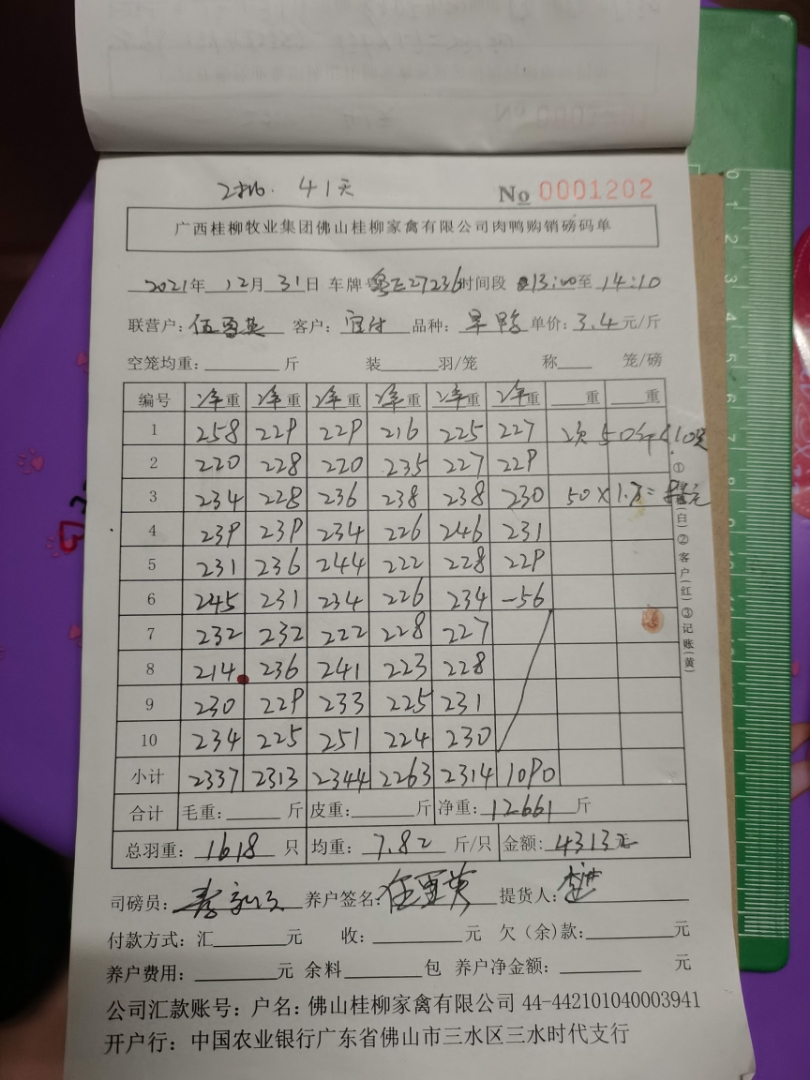 41天 No 0001202
广西桂柳牧业集团佛山桂柳家禽有限公司肉鸭购销磅码单
2021年 12月 31日 车牌号粤E27236时间段 13:00至 14:10
联营户: 客户: 品种: 单价: 3.4元/斤
空笼均重: 斤 装 羽/笼 称 笼/磅
编号 净重 净重 净重 净重 净重 净重 重 重
1 258 229 229 216 225 227
2 220 228 220 235 227 229
3 234 228 236 238 238 230 50×
4 239 239 234 226 246 231
5 231 236 244 222 228 229
6 245 231 234 226 234 -56
7 232 232 222 228 227
8 214 236 241 223 228
9 230 229 233 225 231
10 234 225 251 224 230
小计 2337 2313 2344 2263 2314 1090
合计 毛重: 斤 皮重: 斤 净重: 12661 斤
总羽重: 1618 只 均重: 7.82 斤/只 金额: 4313元
司磅员: 养户签名: 提货人:
付款方式: 汇 元 收: 元 欠(余)款: 元
养户费用: 元 余料 包 养户净金额: 元
公司汇款账号: 户名: 佛山桂柳家禽有限公司 44-442101040003941
开户行: 中国农业银行广东省佛山市三水区三水时代支行
①(白)②客户(红)③记账(黄)